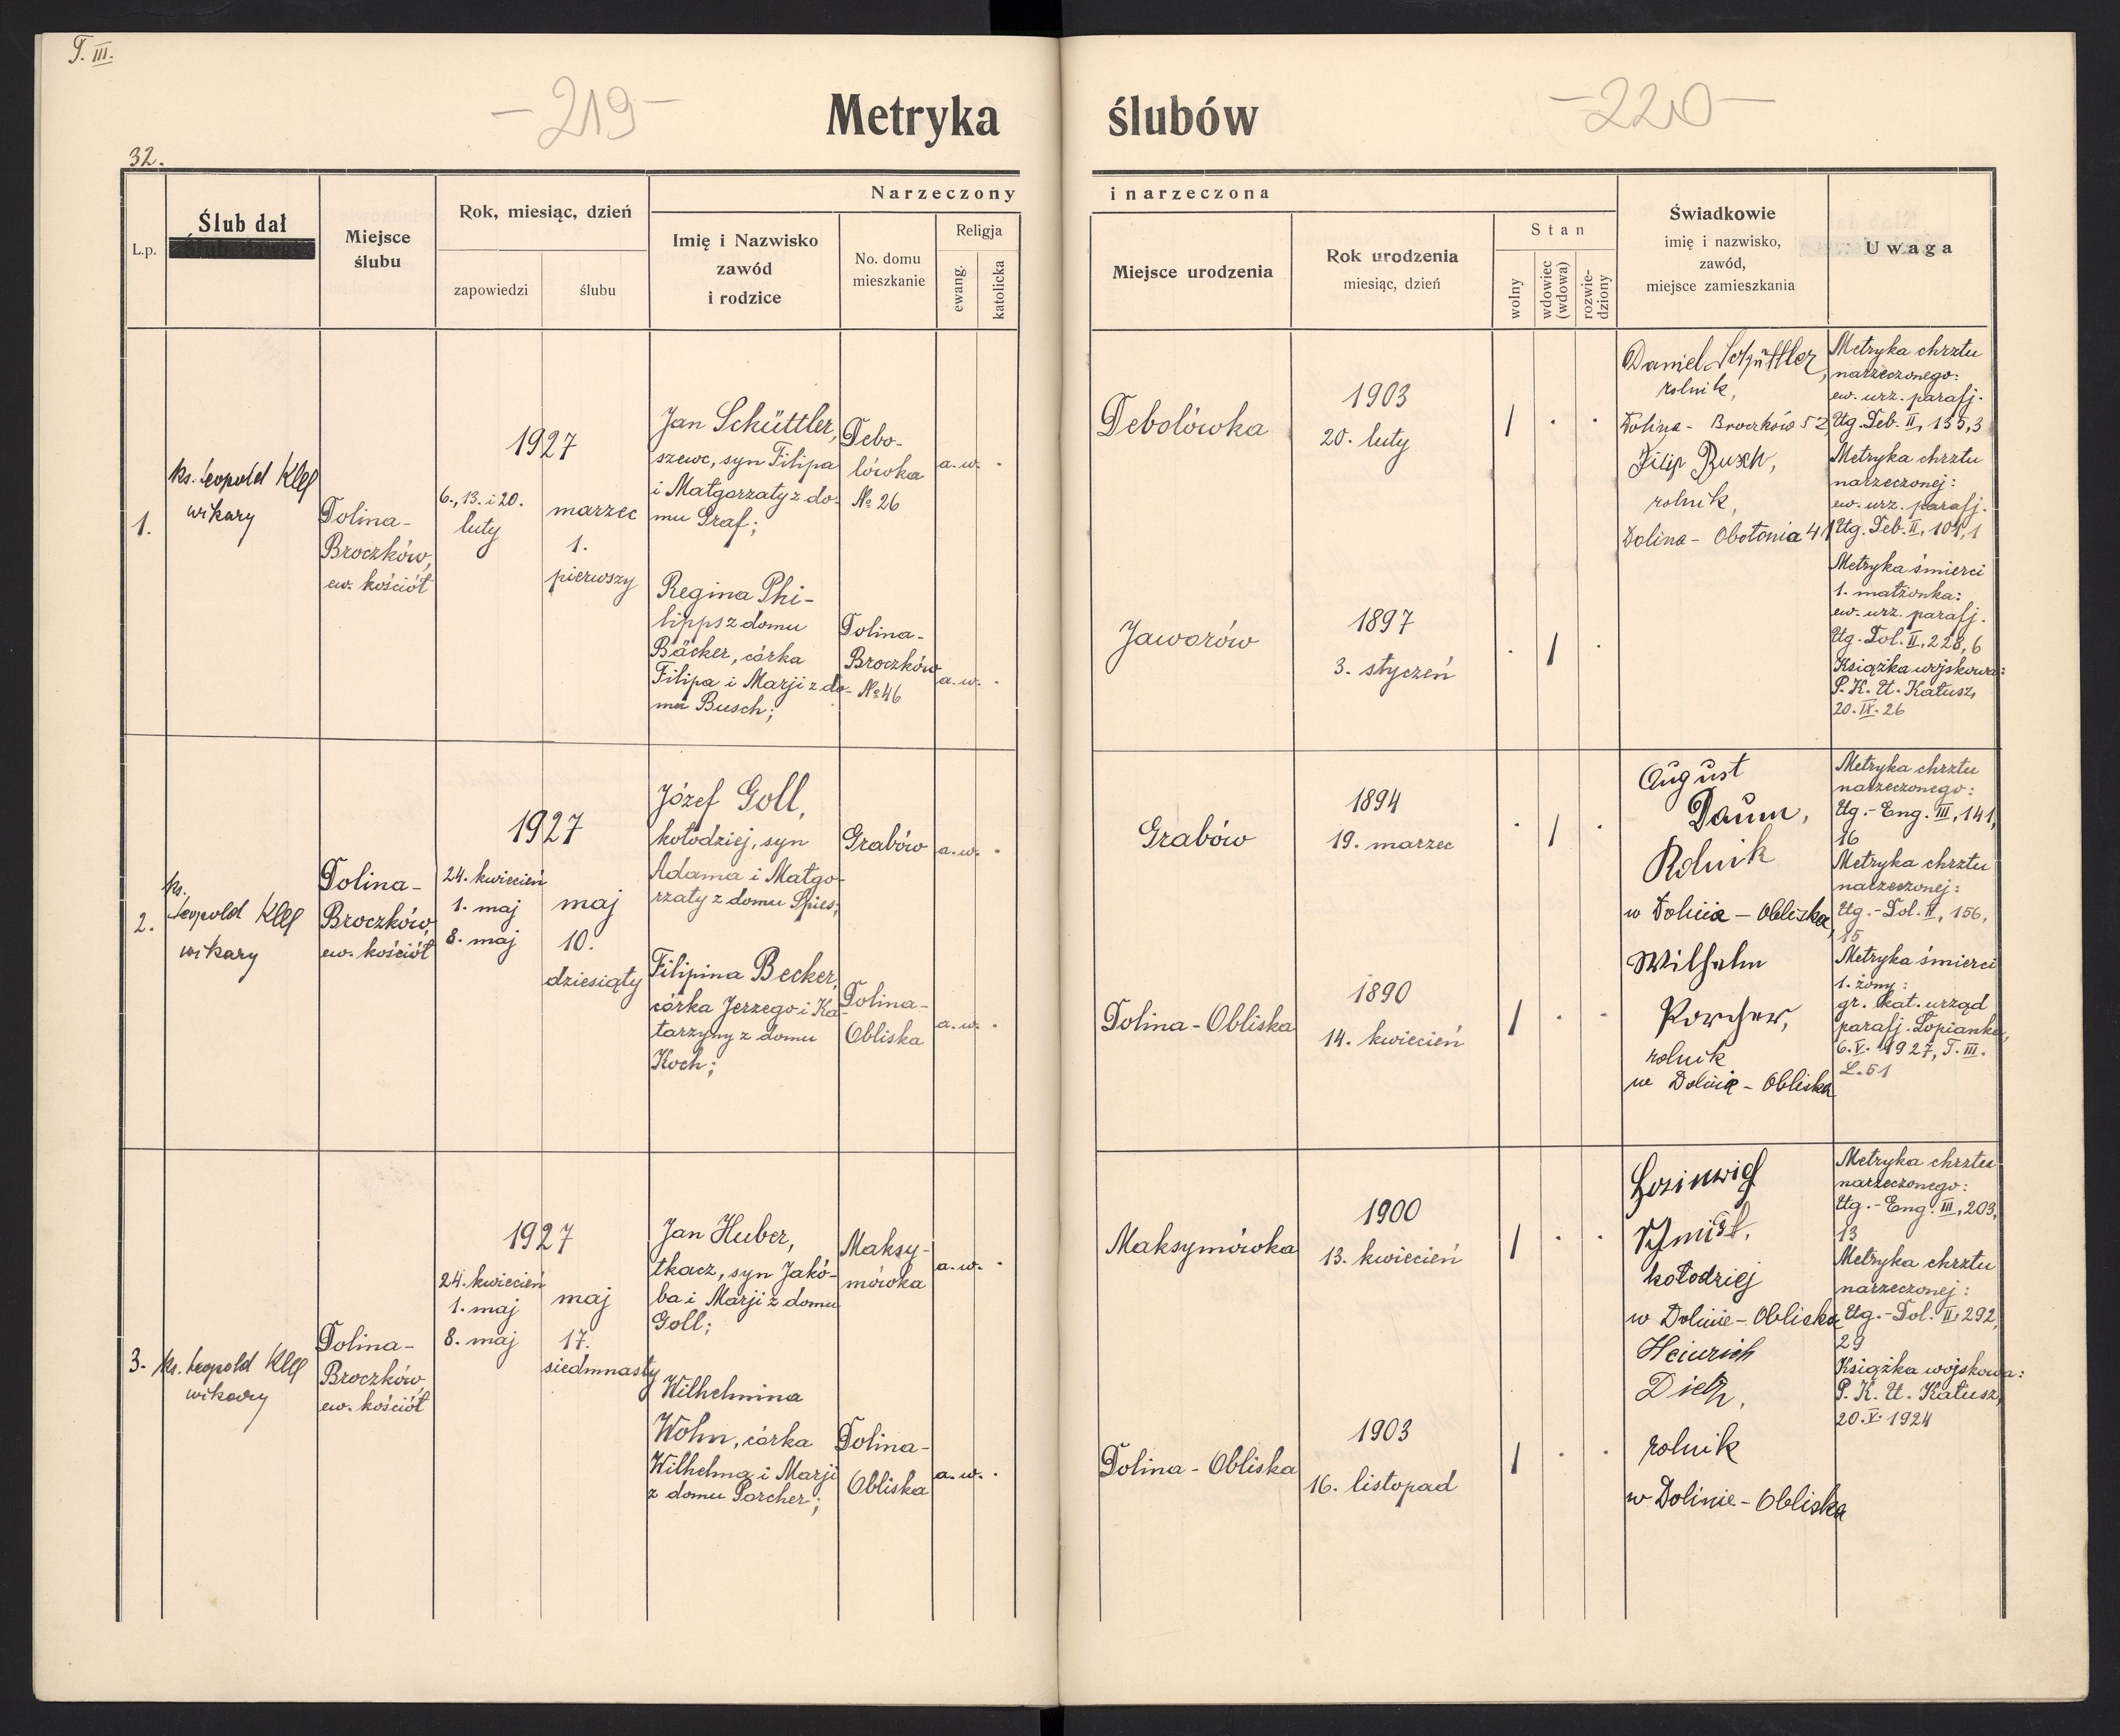 T. III.
- 219 -
Metryka ślubów
- 220 -
32.
L.p.
Ślub dał
Miejsce
ślubu
Rok, miesiąc, dzień
zapowiedzi
ślubu
Narzeczony i narzeczona
Imię i Nazwisko
zawód
i rodzice
No. domu
mieszkanie
Religja
ewang.
katolicka
Miejsce urodzenia
Rok urodzenia
miesiąc, dzień
Stan
wolny
wdowiec
(wdowa)
rozwie-
dziony
Świadkowie
imię i nazwisko,
zawód,
miejsce zamieszkania
Uwaga
1.
ks. Leopold Klee
wikary
Dolina-
Broczków,
ew. kościół
1927
6., 13. i 20.
luty
marzec
1.
pierwszy
Jan Schüttler,
szewc, syn Filipa
i Małgorzaty z do-
mu Graf;
Debo-
lówka
№ 26
a. w. .
Regina Phi-
lipps z domu
Bäcker, córka
Filipa i Marji z do-
mu Busch;
Dolina-
Broczków
№ 46
a. w. .
Debolówka
1903
20. luty
1 . .
Jaworów
1897
3. styczeń
. 1 .
Daniel Schüttler,
rolnik,
Dolina - Broczków 52,
Filip Busch,
rolnik,
Dolina - Obołonia 41
Metryka chrztu
narzeczonego:
ew. urz. parafj.
Ug. Deb. II, 135, 3
Metryka chrztu
narzeczonej:
ew. urz. parafj.
Ug. Deb. II, 101, 1
Metryka śmierci
1. małżonka:
ew. urz. parafj.
Ug. Dol. II, 228, 6
Książka wojskowa:
P. K. U. Kałusz,
20. IX. 26
2.
ks.
Leopold Klee
wikary
Dolina-
Broczków,
ew. kościół
1927
24. kwiecień
1. maj
8. maj
maj
10.
dziesiąty
Józef Goll,
kołodziej, syn
Adama i Małgo-
rzaty z domu Spies;
Grabów
a. w. .
Filipina Becker,
córka Jerzego i Ka-
tarzyny z domu
Koch;
Dolina-
Obliska
a. w. .
Grabów
1894
19. marzec
. 1 .
Dolina - Obliska
1890
14. kwiecień
1 . .
August
Daum,
Rolnik
w Dolinie - Obliska,
Wilhelm
Porcher,
rolnik
w Dolinie - Obliska
Metryka chrztu
narzeczonego:
Ug. - Eng. III, 141,
16
Metryka chrztu
narzeczonej:
Ug. - Dol. II, 156,
15
Metryka śmierci
1. żony:
gr. kat. urząd
parafj. Łopianka,
6. V. 1927, T. III.
L. 51
3.
ks. Leopold Klee
wikary
Dolina-
Broczków,
ew. kościół
1927
24. kwiecień
1. maj
8. maj
maj
17.
siedmnasty
Jan Huber,
tkacz, syn Jakó-
ba i Marji z domu
Goll;
Maksy-
mówka
a. w. .
Wilhelmina
Wohn, córka
Wilhelma i Marji
z domu Porcher;
Dolina-
Obliska
a. w. .
Maksymówka
1900
13. kwiecień
1 . .
Dolina - Obliska
1903
16. listopad
1 . .
Schmidt,
kołodziej
w Dolinie - Obliska
Heinrich
Dietz,
rolnik
w Dolinie - Obliska
Metryka chrztu
narzeczonego:
Ug. - Eng. III, 203,
13
Metryka chrztu
narzeczonej:
Ug. - Dol. II, 292,
29
Książka wojskowa:
P. K. U. Kałusz,
20. V. 1924